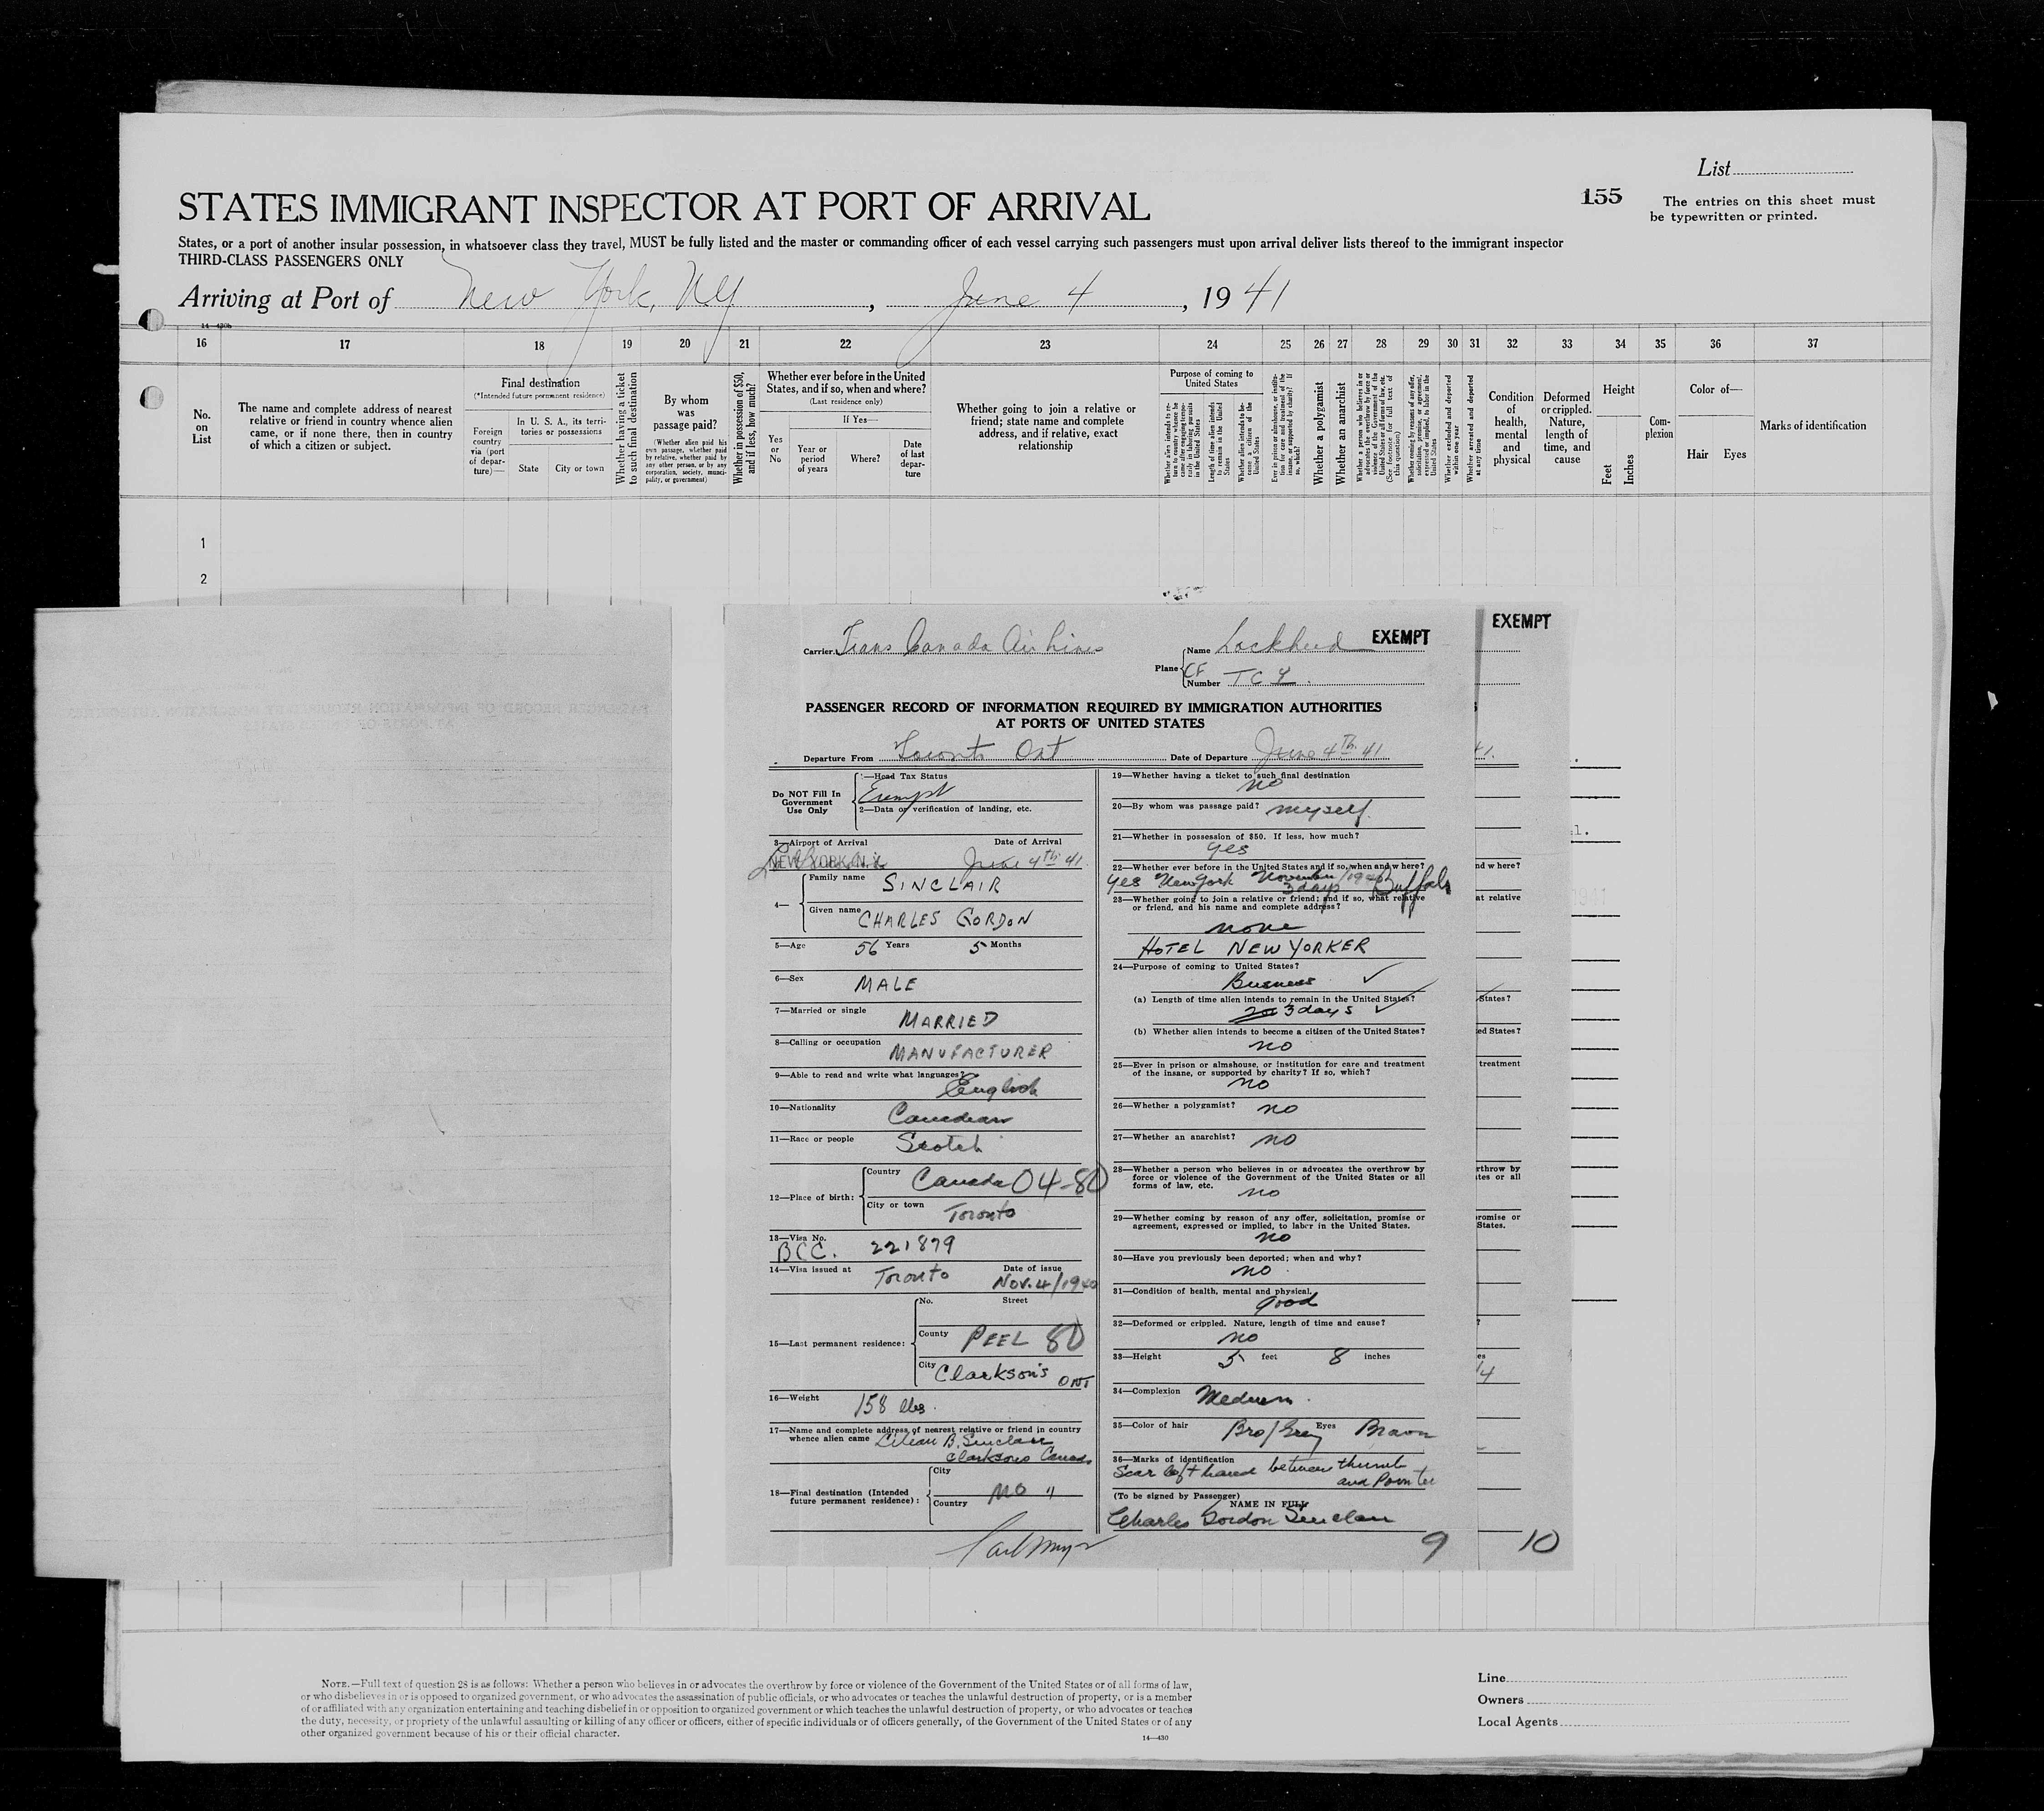 List
155
The entries on this sheet must
be typewritten or printed.
STATES IMMIGRANT INSPECTOR AT PORT OF ARRIVAL
States, or a port of another insular possession, in whatsoever class they travel, MUST be fully listed and the master or commanding officer of each vessel carrying such passengers must upon arrival deliver lists thereof to the immigrant inspector
THIRD-CLASS PASSENGERS ONLY
Arriving at Port of New York, NY, June 4, 1941
14—430b
16 17 18 19 20 21 22 23 24 25 26 27 28 29 30 31 32 33 34 35 36 37
No. on List
The name and complete address of nearest relative or friend in country whence alien came, or if none there, then in country of which a citizen or subject.
Final destination
(*Intended future permanent residence)
Foreign country via (port of departure)—
In U. S. A., its territories or possessions
State
City or town
Whether having a ticket to such final destination
By whom was passage paid?
(Whether alien paid his own passage, whether paid by relative, whether paid by any other person, or by any corporation, society, municipality, or government)
Whether in possession of $50, and if less, how much?
Whether ever before in the United States, and if so, when and where?
(Last residence only)
Yes or No
If Yes—
Year or period of years
Where?
Date of last departure
Whether going to join a relative or friend; state name and complete address, and if relative, exact relationship
Purpose of coming to United States
Whether alien intends to return to country whence he came after engaging temporarily in laboring pursuits in the United States
Length of time alien intends to remain in the United States
Whether alien intends to become a citizen of the United States
Ever in prison or almshouse, or institution for care and treatment of the insane, or supported by charity? If so, which?
Whether a polygamist
Whether an anarchist
Whether a person who believes in or advocates the overthrow by force or violence of the Government of the United States or all forms of law, etc. (See footnote for full text of this question)
Whether coming by reason of any offer, solicitation, promise, or agreement, expressed or implied, to labor in the United States
Whether excluded and deported within one year
Whether arrested and deported at any time
Condition of health, mental and physical
Deformed or crippled. Nature, length of time, and cause
Height
Feet
Inches
Complexion
Color of—
Hair
Eyes
Marks of identification
1
2
Carrier Trans Canada Air Lines
Plane
Name Lockheed
EXEMPT
EXEMPT
CF
Number TCY.
PASSENGER RECORD OF INFORMATION REQUIRED BY IMMIGRATION AUTHORITIES
AT PORTS OF UNITED STATES
Departure From Toronto Ont Date of Departure June 4th 41
Do NOT Fill In Government Use Only
1—Head Tax Status
Exempt
2—Data or verification of landing, etc.
3—Airport of Arrival Date of Arrival
NEW YORK, N.Y. June 4th 41.
4— Family name SINCLAIR
Given name CHARLES GORDON
5—Age 56 Years 5 Months
6—Sex MALE
7—Married or single MARRIED
8—Calling or occupation MANUFACTURER
9—Able to read and write what languages? English
10—Nationality Canadian
11—Race or people Scotch
12—Place of birth: Country Canada 04-80
City or town Toronto
13—Visa No. BCC. 221879
14—Visa issued at Toronto Date of issue Nov. 4/1940
15—Last permanent residence: No. Street
County PEEL 80
City Clarkson's ONT
16—Weight 158 lbs.
17—Name and complete address of nearest relative or friend in country
whence alien came Lilian B. Sinclair
Clarksons Canada
18—Final destination (Intended future permanent residence): City
Country no "
19—Whether having a ticket to such final destination
no
20—By whom was passage paid? myself.
21—Whether in possession of $50. If less, how much?
yes
22—Whether ever before in the United States and if so, when and where?
yes New York November/1940 Buffalo
3 days
23—Whether going to join a relative or friend; and if so, what relative
or friend, and his name and complete address?
none
HOTEL NEW YORKER
24—Purpose of coming to United States?
Business
(a) Length of time alien intends to remain in the United States?
3 days
(b) Whether alien intends to become a citizen of the United States?
no
25—Ever in prison or almshouse, or institution for care and treatment
of the insane, or supported by charity? If so, which?
no
26—Whether a polygamist? no
27—Whether an anarchist? no
28—Whether a person who believes in or advocates the overthrow by
force or violence of the Government of the United States or all
forms of law, etc.
no
29—Whether coming by reason of any offer, solicitation, promise or
agreement, expressed or implied, to labor in the United States.
no
30—Have you previously been deported; when and why?
no
31—Condition of health, mental and physical.
good
32—Deformed or crippled. Nature, length of time and cause?
no
33—Height 5 feet 8 inches
34—Complexion Medium.
35—Color of hair Bro/Grey Eyes Brown
36—Marks of identification
Scar left hand between thumb
and Pointer
(To be signed by Passenger)
NAME IN FULL
Charles Gordon Sinclair
9 10
NOTE.—Full text of question 28 is as follows: Whether a person who believes in or advocates the overthrow by force or violence of the Government of the United States or of all forms of law,
or who disbelieves in or is opposed to organized government, or who advocates the assassination of public officials, or who advocates or teaches the unlawful destruction of property, or is a member
of or affiliated with any organization entertaining and teaching disbelief in or opposition to organized government or which teaches the unlawful destruction of property, or who advocates or teaches
the duty, necessity, or propriety of the unlawful assaulting or killing of any officer or officers, either of specific individuals or of officers generally, of the Government of the United States or of any
other organized government because of his or their official character.
14—430
Line
Owners
Local Agents